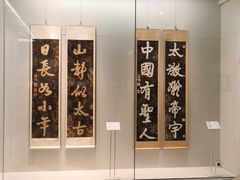 太微凝帝宇
中國有聖人
山靜似太古
日長如小年